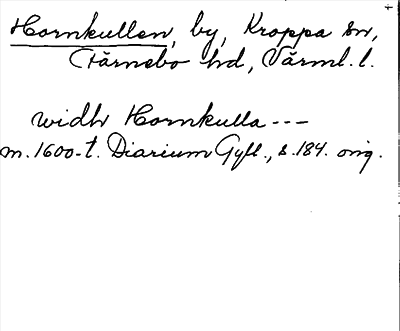 Hornkullen, by, Kroppa sn,
Färnebo hd, Värml. l.
widh Hornkulla ---
m. 1600-t. Diarium Gyll., s. 184. orig.